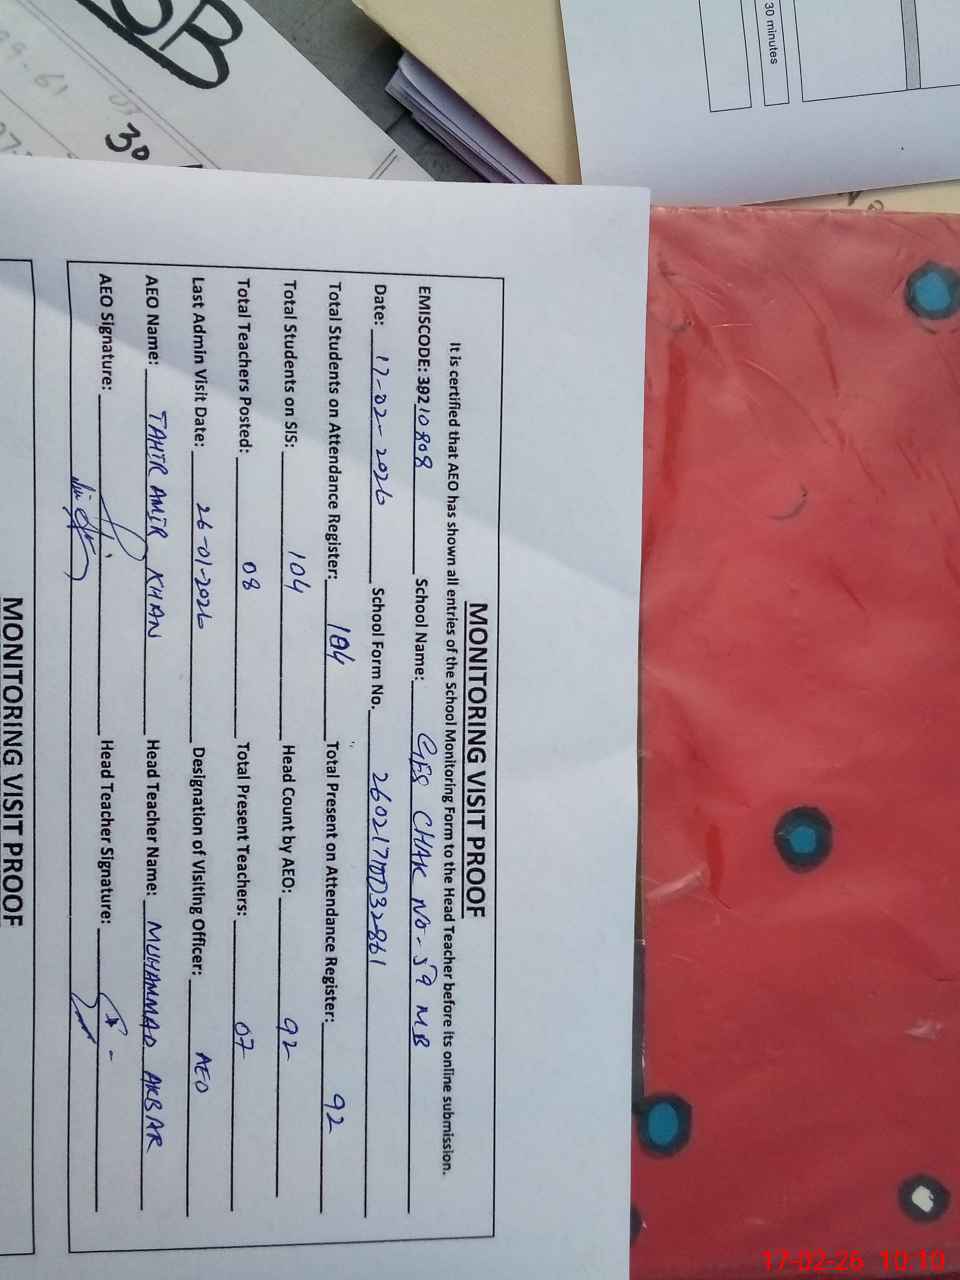 MONITORING VISIT PROOF
It is certified that AEO has shown all entries of the School Monitoring Form to the Head Teacher before its online submission.
EMISCODE: 39210808 School Name: GES CHAK NO-59 MB
Date: 17-02-2026 School Form No. 260217MD32861
Total Students on Attendance Register: 104 Total Present on Attendance Register: 92
Total Students on SIS: 104 Head Count by AEO: 92
Total Teachers Posted: 08 Total Present Teachers: 07
Last Admin Visit Date: 26-01-2026 Designation of Visiting Officer: AEO
AEO Name: TAHIR AMIR KHAN Head Teacher Name: MUHAMMAD AKBAR
AEO Signature: Head Teacher Signature:
MONITORING VISIT PROOF
30 minutes
30
17-02-26 10:10